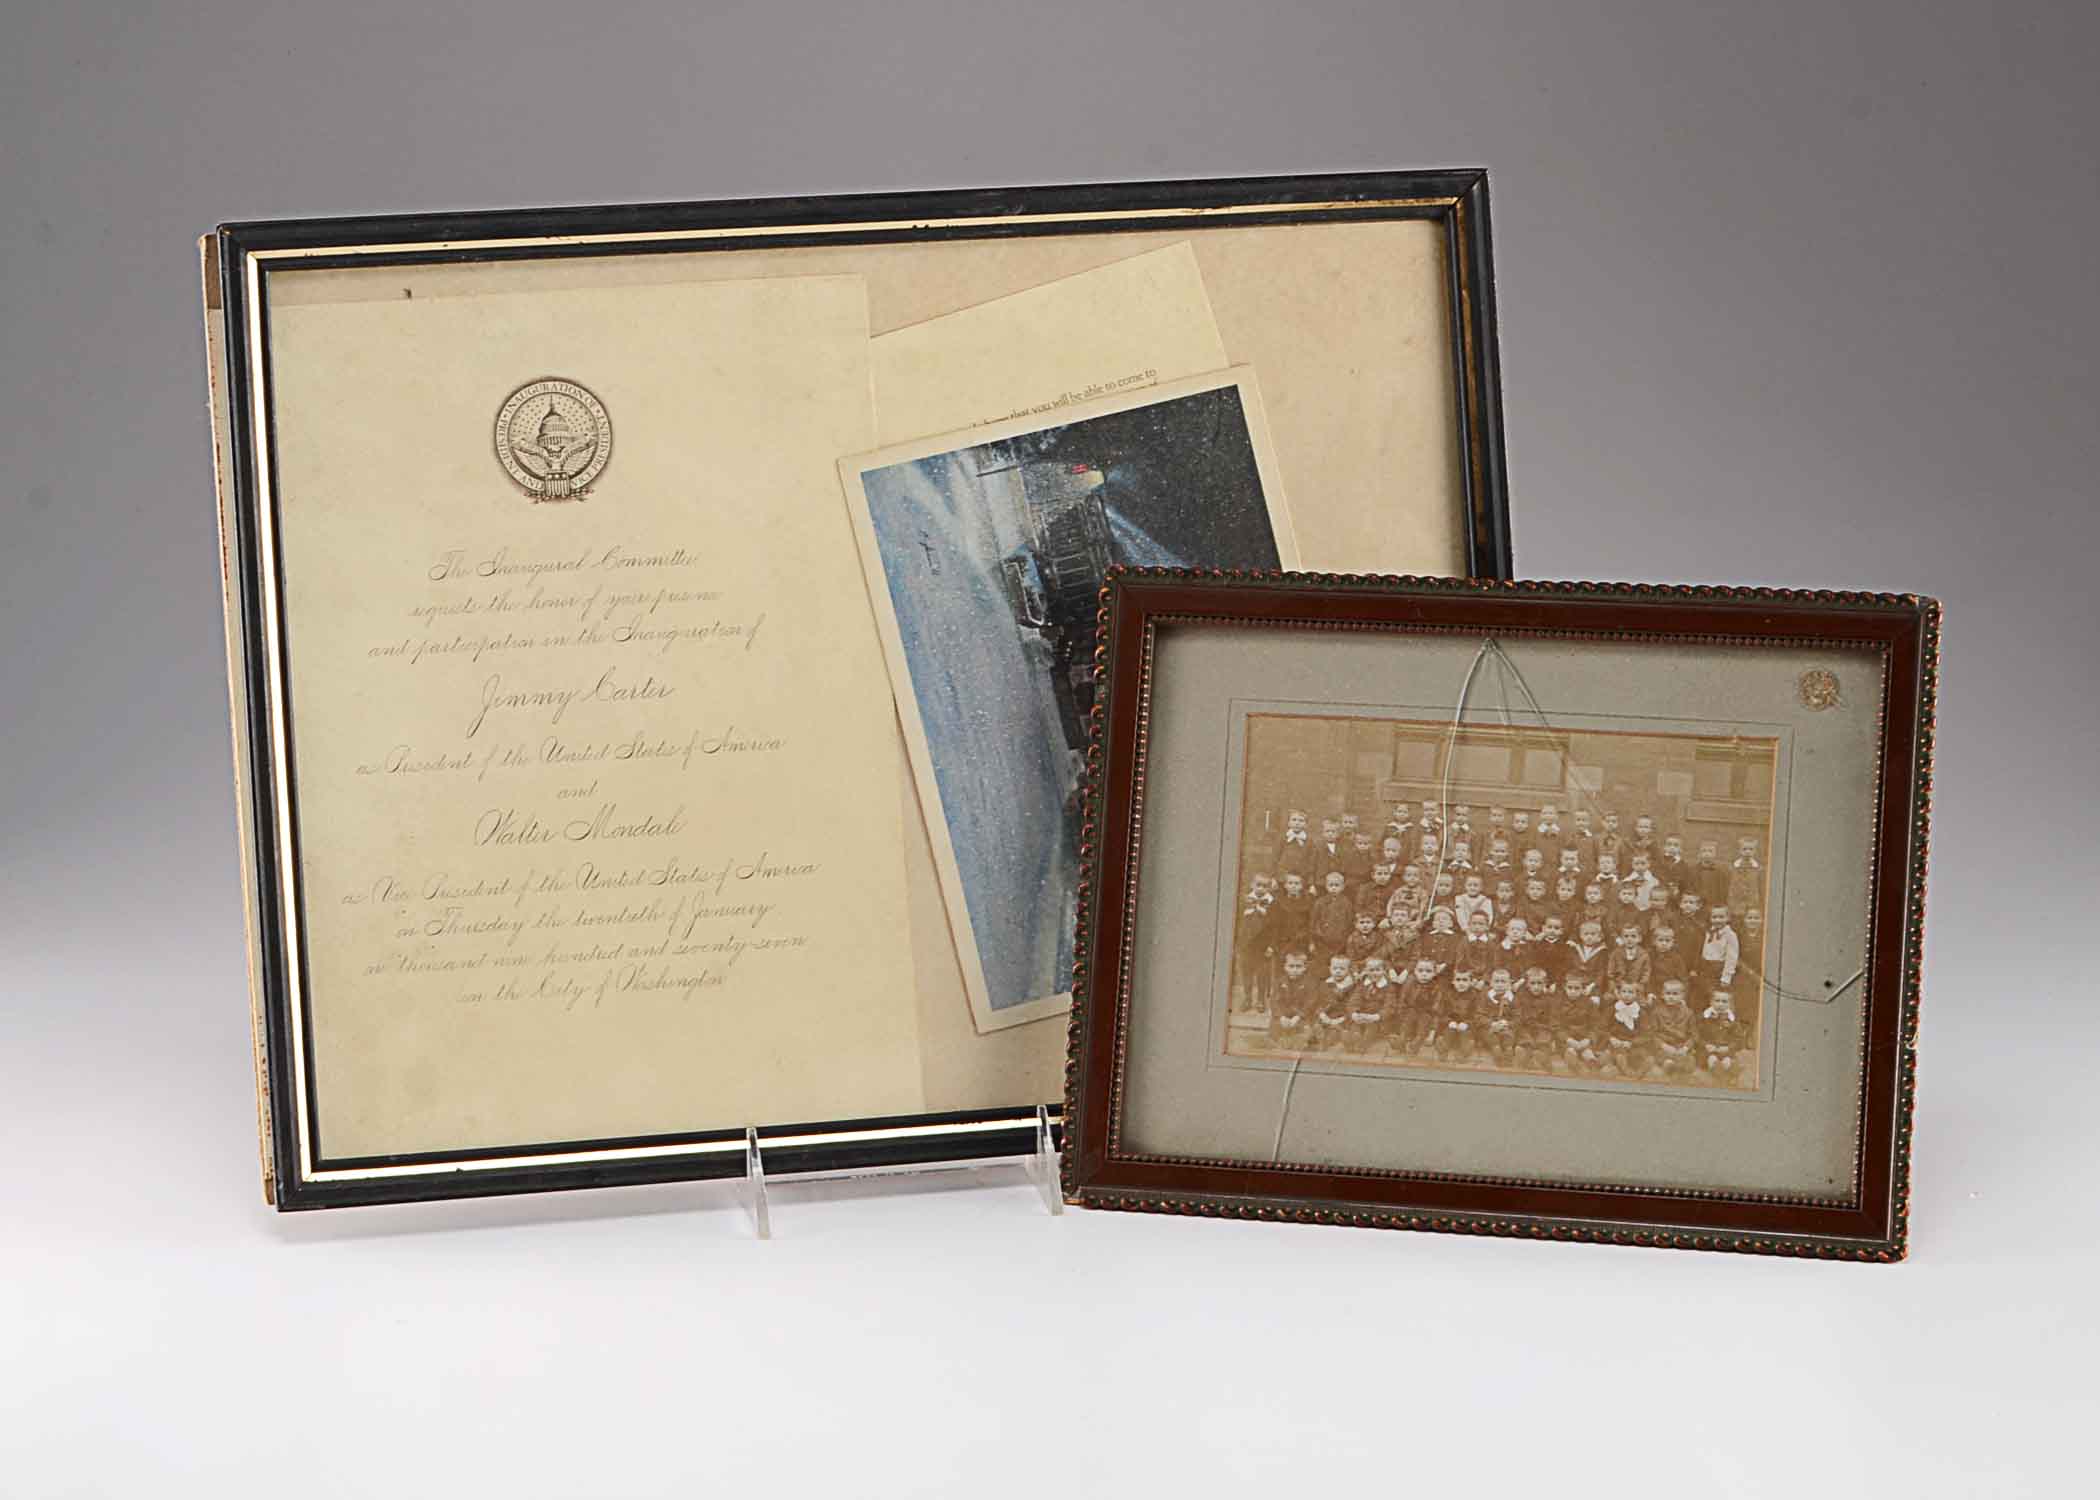 INAUGURATION OF PRESIDENT AND VICE PRESIDENT
The Inaugural Committee
requests the honor of your presence
and participation in the Inauguration of
Jimmy Carter
as President of the United States of America
and
Walter Mondale
as Vice President of the United States of America
on Thursday the twentieth of January
one thousand nine hundred and seventy-seven
in the City of Washington
that you will be able to come to
of